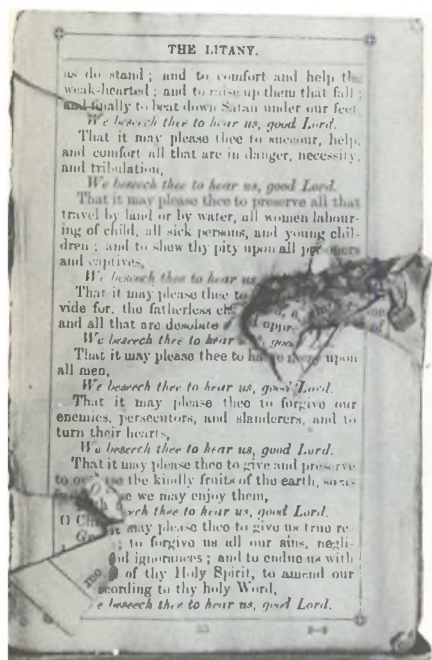 THE LITANY.
as do stand; and to comfort and help the
weak-hearted; and to raise up them that fall;
and finally to beat down Satan under our feet.
We beseech thee to hear us, good Lord.
That it may please thee to succour, help,
and comfort all that are in danger, necessity,
and tribulation,
We beseech thee to hear us, good Lord.
That it may please thee to preserve all that
travel by land or by water, all women labour-
ing of child, all sick persons, and young chil-
dren; and to shew thy pity upon all prisoners
and captives,
We beseech thee to hear us,
That it may please thee to
vide for, the fatherless
and all that are desolate
We beseech thee to hear
That it may please thee to upon
all men,
We beseech thee to hear us, good Lord.
That it may please thee to forgive our
enemies, persecutors, and slanderers, and to
turn their hearts,
We beseech thee to hear us, good Lord.
That it may please thee to give and preserve
to the kindly fruits of the earth, so as
we may enjoy them,
thee to hear us, good Lord.
may please thee to give us true re-
; to forgive us all our sins, negli-
ignorances; and to endue us with
of thy Holy Spirit, to amend our
according to thy holy Word,
beseech thee to hear us, good Lord.